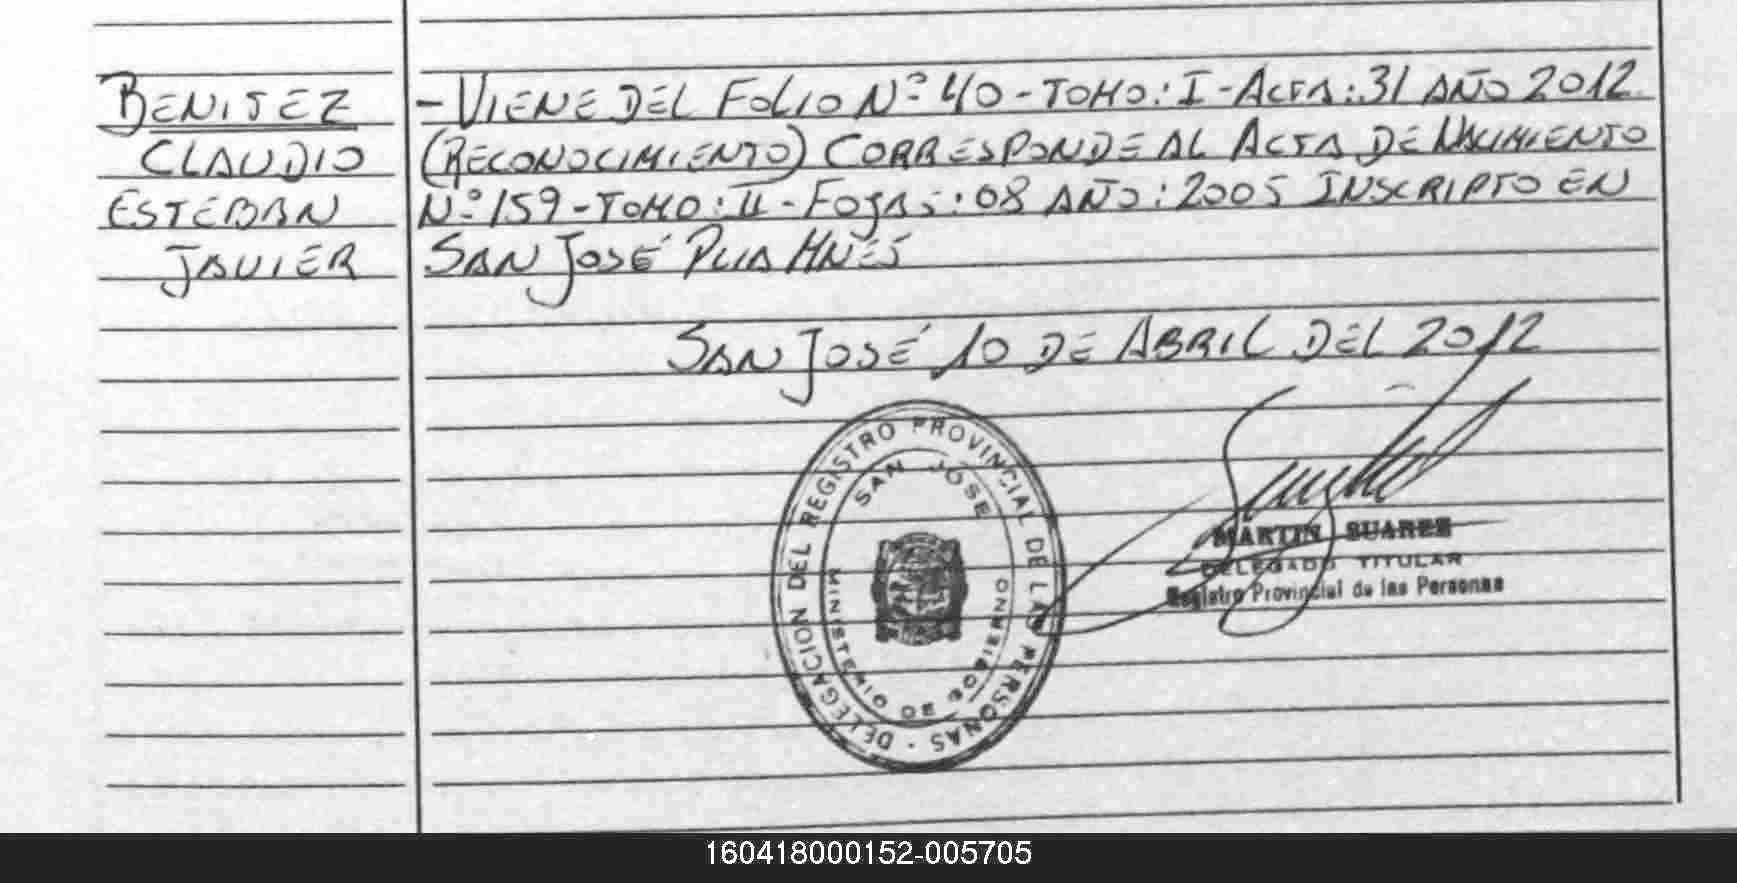 BENITEZ
CLAUDIO
ESTEBAN
JAVIER
- VIENE DEL FOLIO Nº 40 - TOMO: I - ACTA: 31 AÑO 2012
(RECONOCIMIENTO) CORRESPONDE AL ACTA DE NACIMIENTO
Nº 159 - TOMO: II - FOJAS: 08 AÑO: 2005 INSCRIPTO EN
SAN JOSÉ PCIA MNES
SAN JOSÉ 10 DE ABRIL DEL 2012
DELEGACION DEL REGISTRO PROVINCIAL DE LAS PERSONAS -
SAN JOSE
MINISTERIO DE GOBIERNO
MARTIN SUAREZ
DELEGADO TITULAR
Registro Provincial de las Personas
160418000152-005705